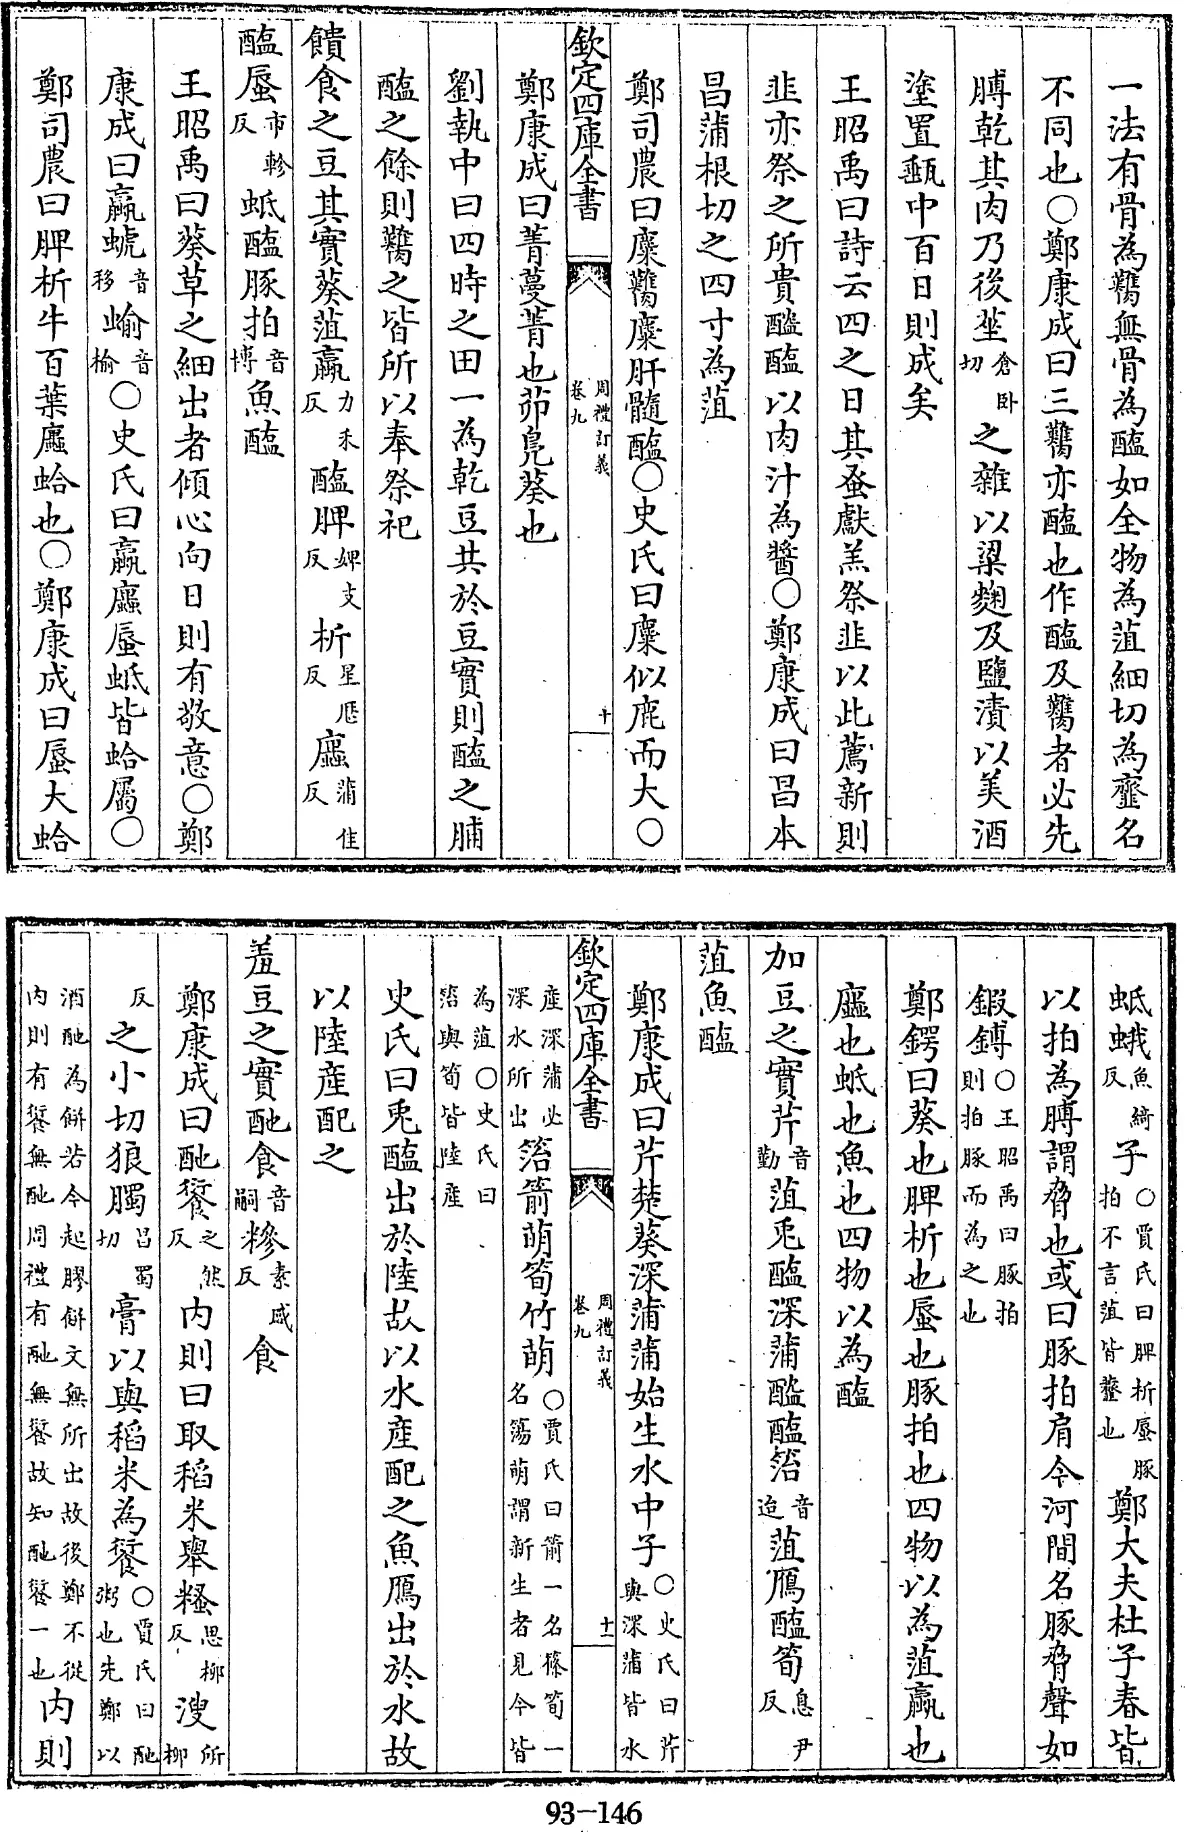 一法有骨為臡無骨為醢如全物為菹細切為虀名
不同也○鄭康成曰三臡亦醢也作醢及臡者必先
膊乾其肉乃後莝倉卧切之雜以粱麴及鹽漬以美酒
塗置甀中百日則成矣
王昭禹曰詩云四之日其蚤獻羔祭韭以此薦新則
韭亦祭之所貴醓醢以肉汁為醬○鄭康成曰昌本
昌蒲根切之四寸為菹
鄭司農曰麋臡麋肝髓醢○史氏曰麋似鹿而大○
欽定四庫全書
周禮訂義
卷九
十
鄭康成曰菁蔓菁也茆鳧葵也
劉執中曰四時之田一為乾豆共於豆實則醢之脯
醢之餘則臡之皆所以奉祭祀
饋食之豆其實葵菹蠃力禾反醢脾婢支反析星厯反蠯蒲佳反
醢蜃市軫反蚳醢豚拍音博魚醢
王昭禹曰葵草之細出者傾心向日則有敬意○鄭
康成曰蠃螔音移蝓音榆○史氏曰蠃蠯蜃蚳皆蛤屬○
鄭司農曰脾析牛百葉蠯蛤也○鄭康成曰蜃大蛤
蚳蛾魚綺反子○賈氏曰脾析蜃豚拍不言菹皆虀也鄭大夫杜子春皆
以拍為膊謂脅也或曰豚拍肩今河間名豚脅聲如
鍛鎛○王昭禹曰豚拍則拍豚而為之也
鄭鍔曰葵也脾析也蜃也豚拍也四物以為菹蠃也
蠯也蚳也魚也四物以為醢
加豆之實芹音勤菹兎醢深蒲醓醢箈音迨菹鴈醢筍息尹反
菹魚醢
鄭康成曰芹楚葵深蒲蒲始生水中子○史氏曰芹與深蒲皆水
欽定四庫全書
周禮訂義
卷九
十一
產深蒲必深水所出箈箭萌筍竹萌○賈氏曰箭一名篠筍一名簜萌謂新生者見今皆
為菹○史氏曰箈與筍皆陸產
史氏曰兎醢出於陸故以水產配之魚鴈出於水故
以陸產配之
羞豆之實酏食音嗣糝素感反食
鄭康成曰酏餈之然反內則曰取稻米舉糔思柳反溲所柳
反之小切狼臅昌蜀切膏以與稻米為餈○賈氏曰酏粥也先鄭以酏
酒酏為餅若今起膠餅文無所出故後鄭不從內則有餈無酏周禮有酏無餈故知酏餈一也內則
93-146